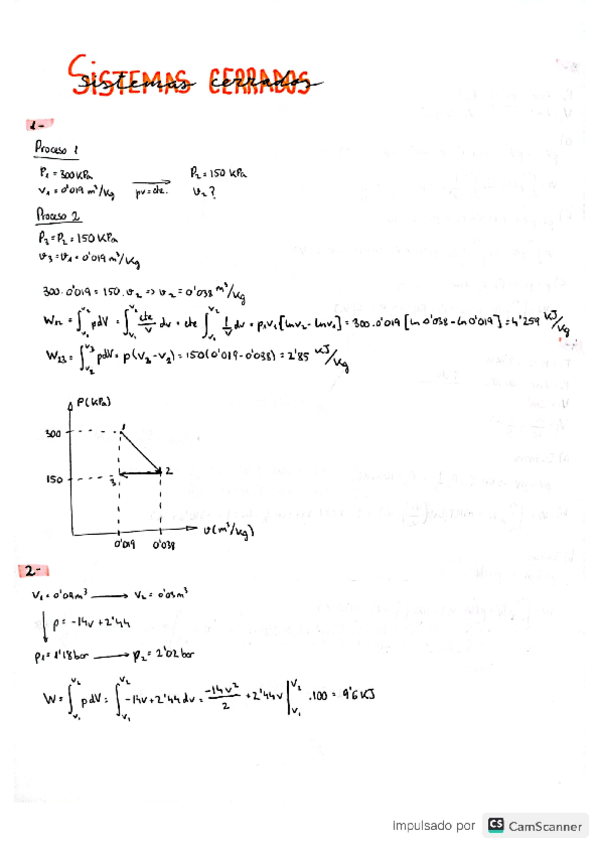 SISTEMAS CERRADOS
sistemas cerrados
1-
Proceso 1
P₁ = 300 KPa P₂ = 150 KPa
V₁ = 0'019 m³/Kg pv=cte. v₂?
Proceso 2
P₃ = P₂ = 150 KPa
v₃ = v₁ = 0'019 m³/Kg
300·0'019 = 150·v₂ => v₂ = 0'038 m³/Kg
W₁₂ = ∫ᵥ₁ᵛ² pdV = ∫ᵥ₁ᵛ² cte/v dv = cte ∫ᵥ₁ᵛ² 1/v dv = p₁v₁[lnv₂ - lnv₁] = 300·0'019 [ln 0'038 - ln 0'019] = 4'259 KJ/Kg
W₂₃ = ∫ᵥ₂ᵛ³ pdV = p(v₃-v₂) = 150(0'019-0'038) = 2'85 KJ/Kg
P(KPa)
300 1
150 3 2
v(m³/Kg)
0'019 0'038
2-
V₁ = 0'09m³ → V₂ = 0'03m³
↓ p = -14v + 2'44
p₁ = 1'18 bar → p₂ = 2'02 bar
W = ∫ᵥ₁ᵛ² pdV = ∫ᵥ₁ᵛ² -14v + 2'44 dv = -14v²/2 + 2'44v |ᵥ₁ᵛ² .100 = 9'6 KJ
Impulsado por CS CamScanner